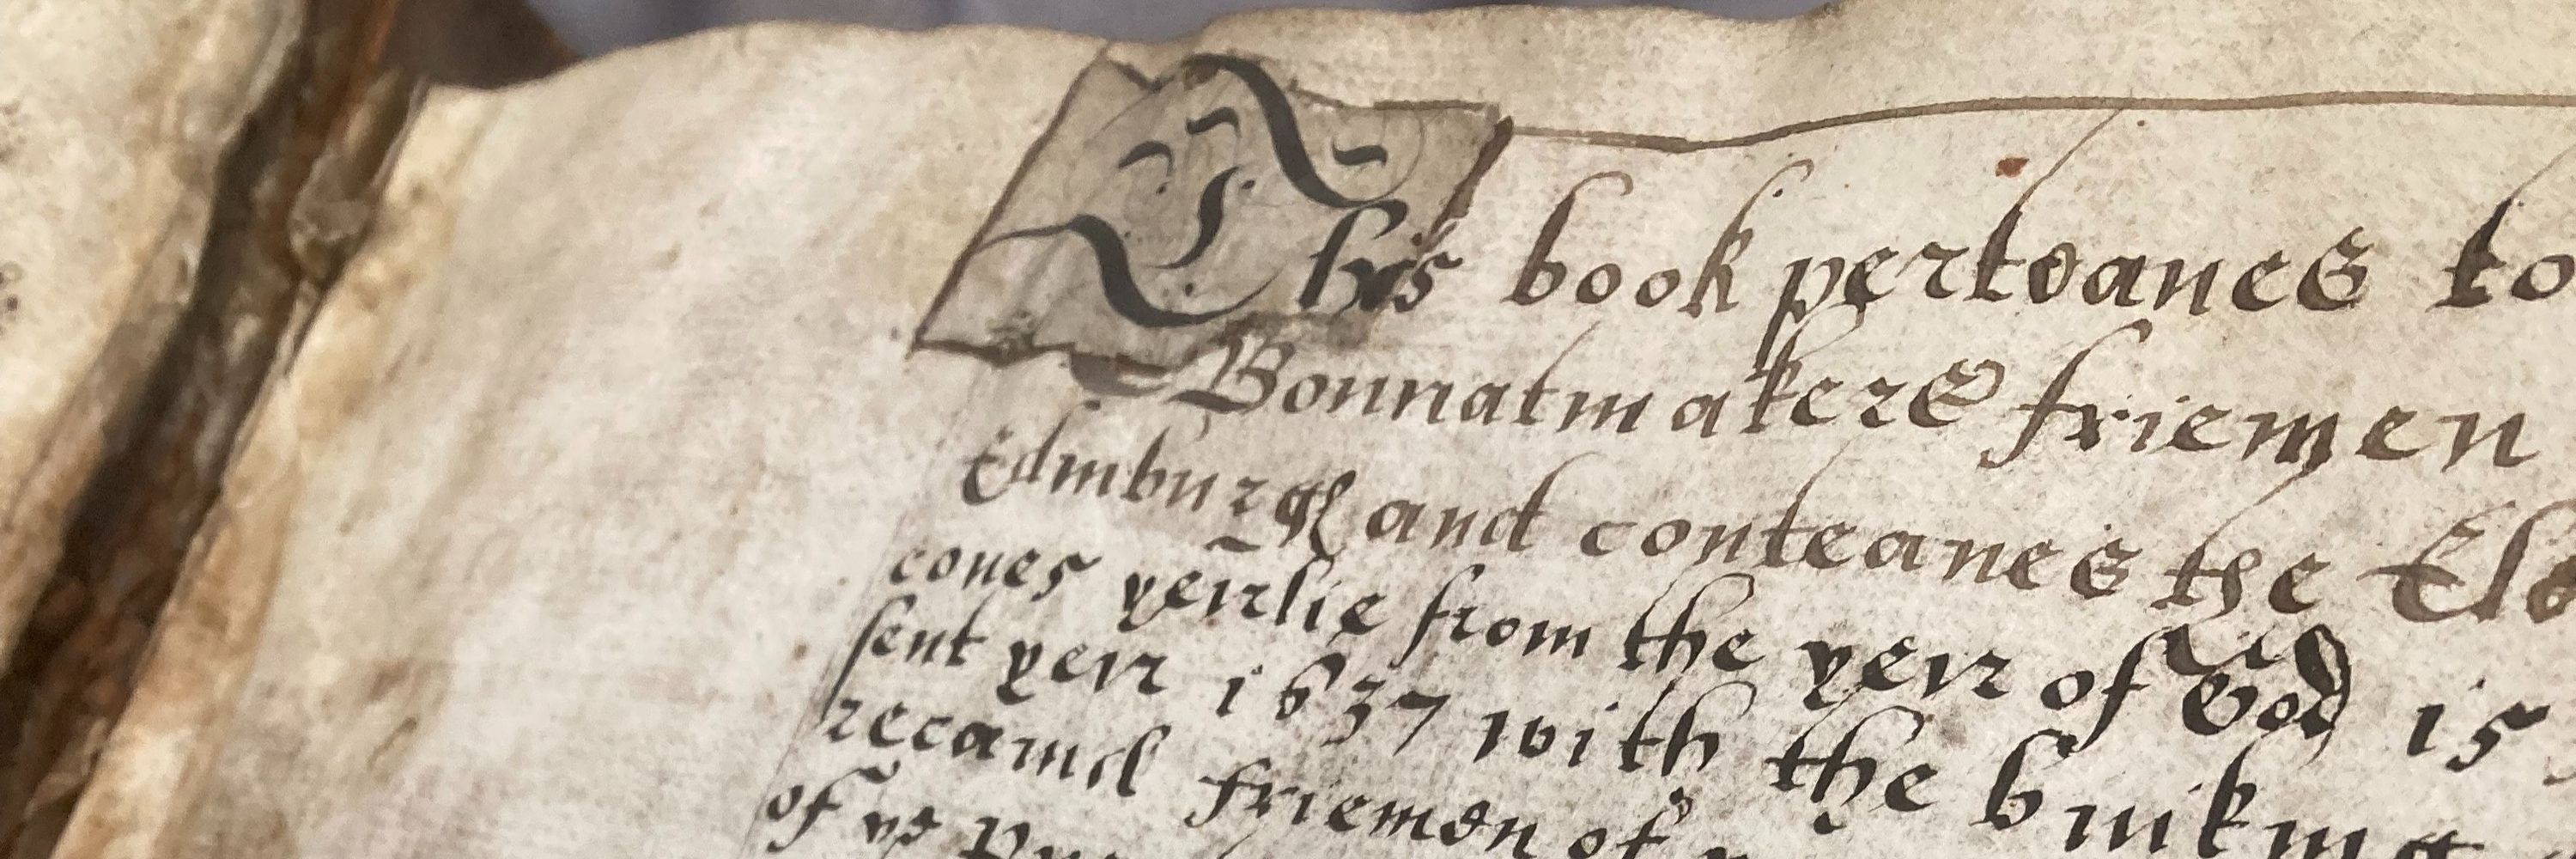 This book perteanes to
Bonnatmakers friemen
Edinburgh and conteanes the
cones yeirlie from the yeir of God 15
sent yeir 1637 with the buiking
recamd friemen of
of ye